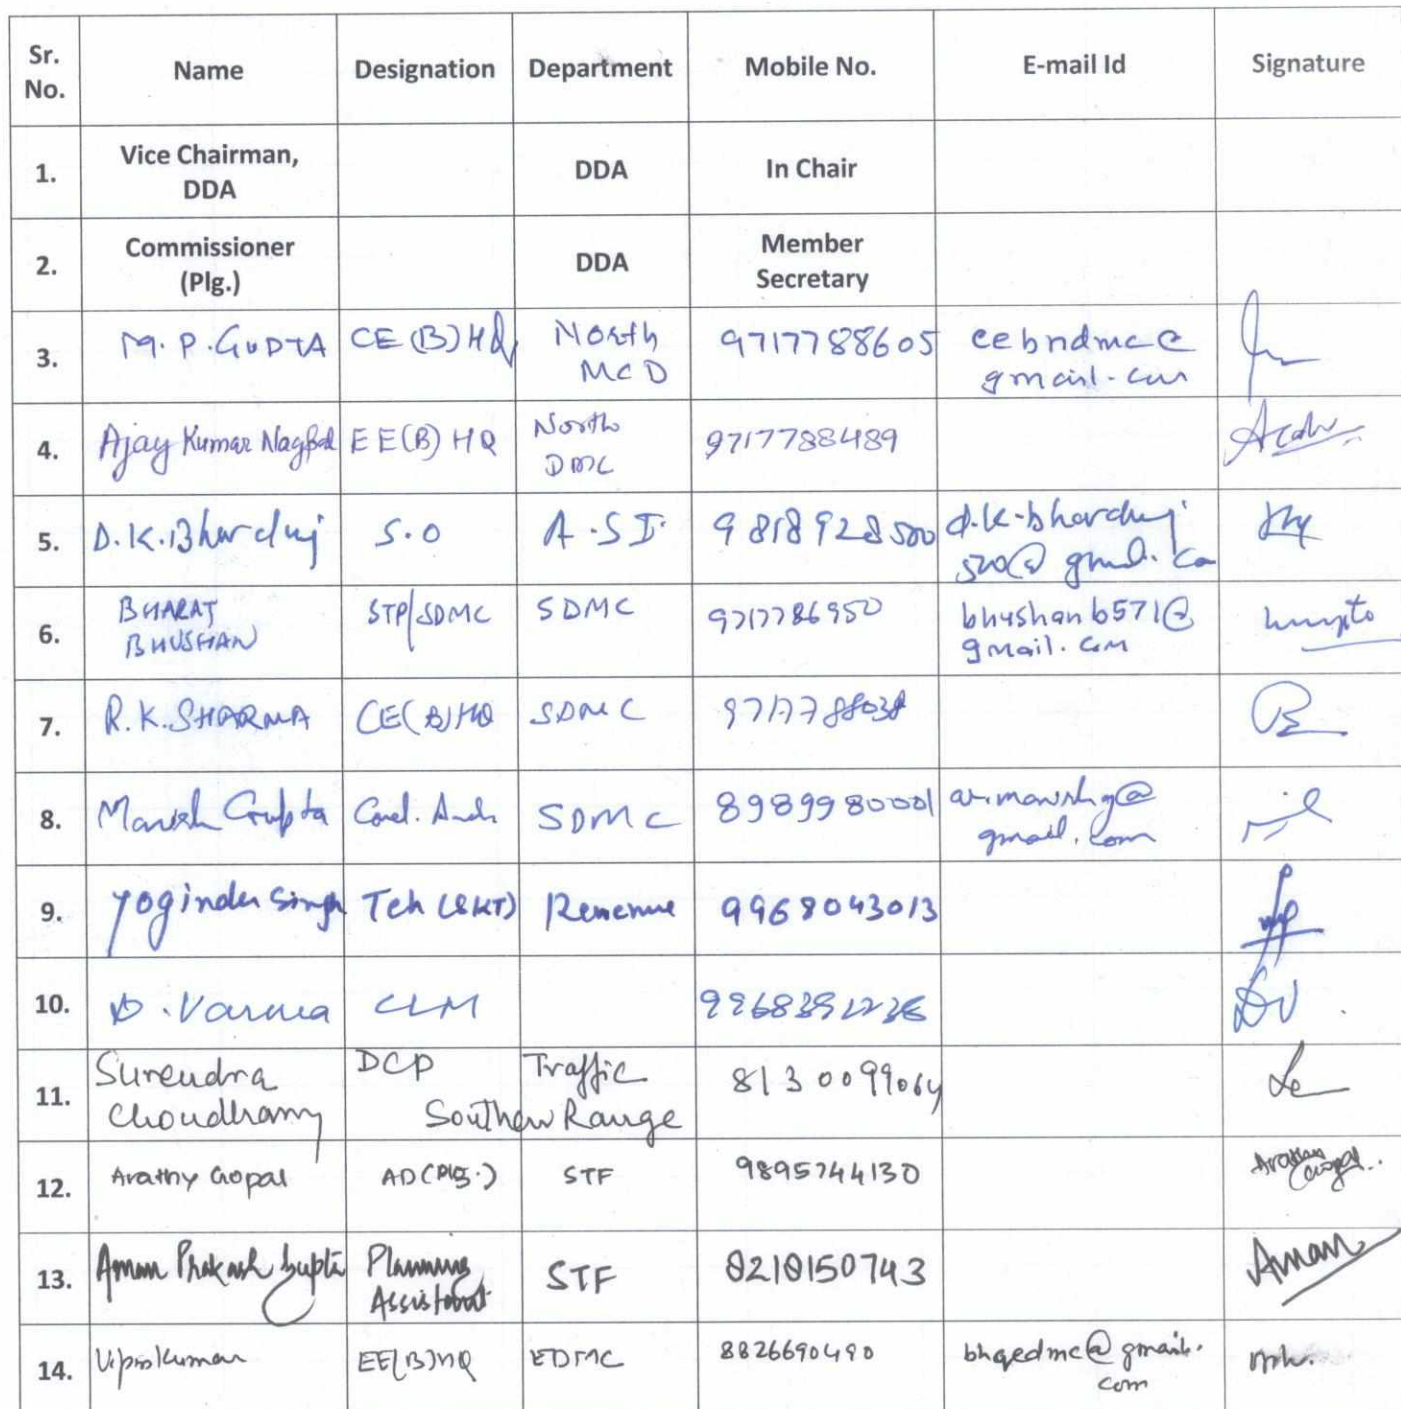 Sr. No. Name Designation Department Mobile No. E-mail Id Signature
1. Vice Chairman, DDA DDA In Chair
2. Commissioner (Plg.) DDA Member Secretary
3. M.P.GUPTA CE(B)HQ North MCD 9717788605 cebndmc@
gmail.com
4. Ajay Kumar Nagpal EE(B) HQ North DMC 9717788489
5. D.K.Bharduj S.O A.S.I. 9818928500 d.k.bharduj
500@gmail.com
6. BHARAT BHUSHAN STP/SDMC SDMC 9717786950 bhushanb571@
gmail.com
7. R.K.SHARMA CE(B)HQ SDMC 9717788038
8. Manish Gupta SDMC 8989980001
gmail.com
9. Yoginder Singh Teh Revenue 9968043013
10. D. Varma CLM
11. Surendra Choudhary DCP Traffic Southern Range 8130099064
12. Arathy Gopal AD(Plg.) STF 9895744130 Arathy Gopal
13. Aman Prakash Gupta Planning Assistant STF 8218150743 Aman
14. Vipin Kumar EE(B)HQ EDMC 8826690490 bhqedmc@gmail.
com